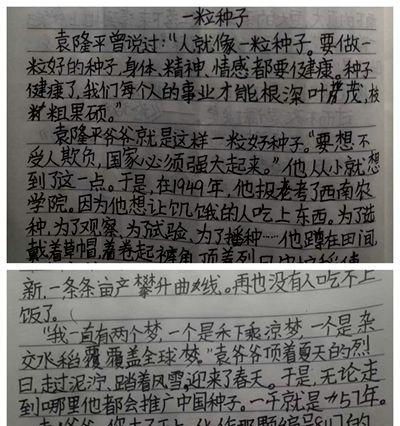 一粒种子
袁隆平曾说过:“人就像一粒种子。要做一
粒好的种子,身体、精神、情感都要健康。种子
健康了,我们每个人的事业才能根深叶茂,枝
粗果硕。”
袁隆平爷爷就是这样一粒好种子。“要想不
受人欺负,国家必须强大起来。”他从小就想
到了这一点。于是,在1949年,他报考了西南农
学院。因为他想让饥饿的人吃上东西。为了选
种,为了观察、为了试验、为了播种……他蹲在田间,
戴着草帽,着卷起裤角,顶着烈日
新,一条条亩产攀升曲线。再也没有人吃不上
饭了。
“我一直有两个梦,一个是禾下乘凉梦,一个是杂
交水稻覆盖全球梦。”袁爷爷顶着夏天的烈
日,走过泥泞,踏着风雪,迎来了春天。于是,无论走
到哪里他都会推广中国种子。一干就是57年。